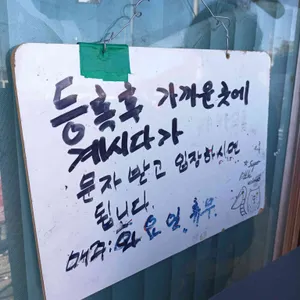 등록후 가까운 곳에
계시다가
문자 받고 입장하시면
됩니다.
매주: 화요일, 휴무.